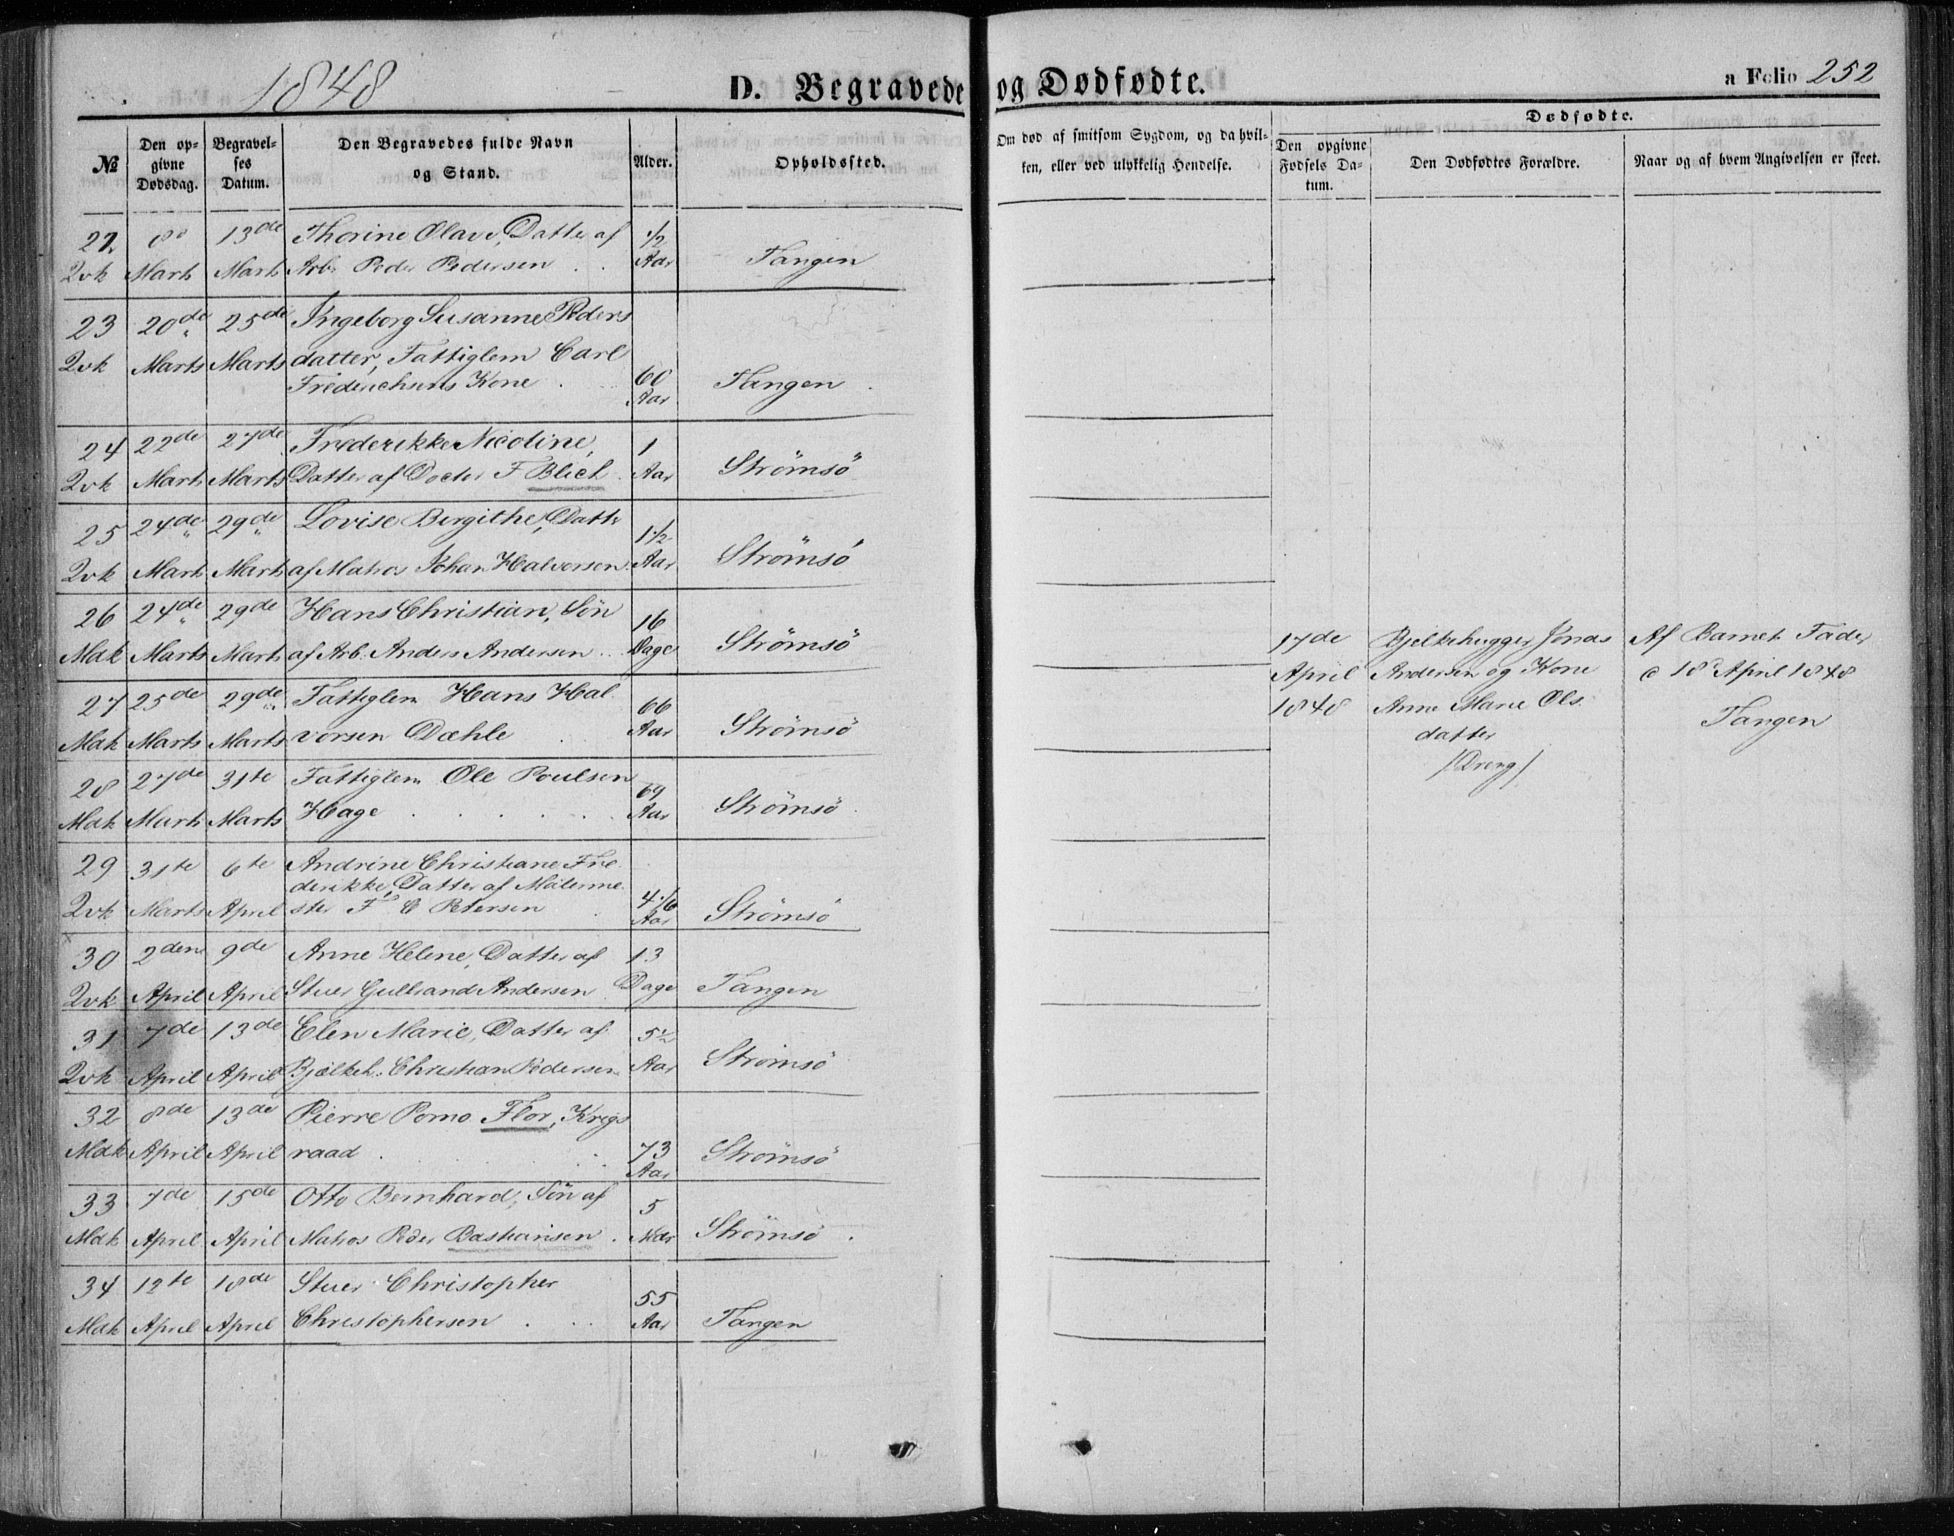 1848
D. Begravede og Dødfødte.
a Folio 252
№
Den opgivne Dødsdag.
Begravelses Datum.
Den Begravedes fulde Navn og Stand.
Alder.
Opholdssted.
Om død af smitsom Sygdom, og da hvilken, eller ved ulykkelig Hendelse.
Dødfødte.
Den opgivne Fødsels Datum.
Den Dødfødtes Forældre.
Naar og af hvem Angivelsen er skeet.
22. 8de 13de Thorine Olave, Datter af 1/2
Qvk Marts Marts Arb. Peder Pedersen Aar Tangen
23 20de 25de Ingeborg Susanne Peders
Qvk Marts Marts datter, Fattiglem Carl
Frederichsens Kone 60 Aar Tangen
24 22de 27de Frederikke Nicoline, 1
Qvk Marts Marts Datter af Doctor F Blich Aar Strömsö
25 24de 29de Lovise Birgithe, Datter 1 1/2
Qvk Marts Marts af Matros Johan Halvorsen Aar Strömsö
26 24de 29de Hans Christian, Sön 16
Mdk Marts Marts af Arb. Anders Andersen Dage Strömsö
27 25de 29de Fattiglem Hans Hal 66
Mdk Marts Marts vorsen Dæhle Aar Strömsö
28 27de 31te Fattiglem Ole Poulsen 69
Mdk Marts Marts Hage Aar Strömsö
29 31te 6te Andrine Christiane Fre
derikke, Datter af Målerme
Qvk Marts April ster F C Petersen 4 1/6 Aar Strömsö
30 2den 9de Anne Helene, Datter af 13
Qvk April April Stuer Gulbrand Andersen Dage Tangen
31 7de 13de Elen Marie, Datter af 5 1/2
Qvk April April Bjælkeh. Christian Pedersen Aar Strömsö
32 8de 13de Pierre Pomo Flor, Krigs
Mdk April April raad 73 Aar Strömsö
33 7de 15de Otto Bernhard, Sön af 5
Mdk April April Matros Peder Bastiansen Mdr Strömsö
34 12te 18de Stuer Christopher 55
Mdk April April Christophersen Aar Tangen
17de Bjelkehugger Jonas Af Barnets Fader
April Andersen og Kone d 18 April 1848
1848 Anne Marie Ols Tangen
datter
/Dreng/